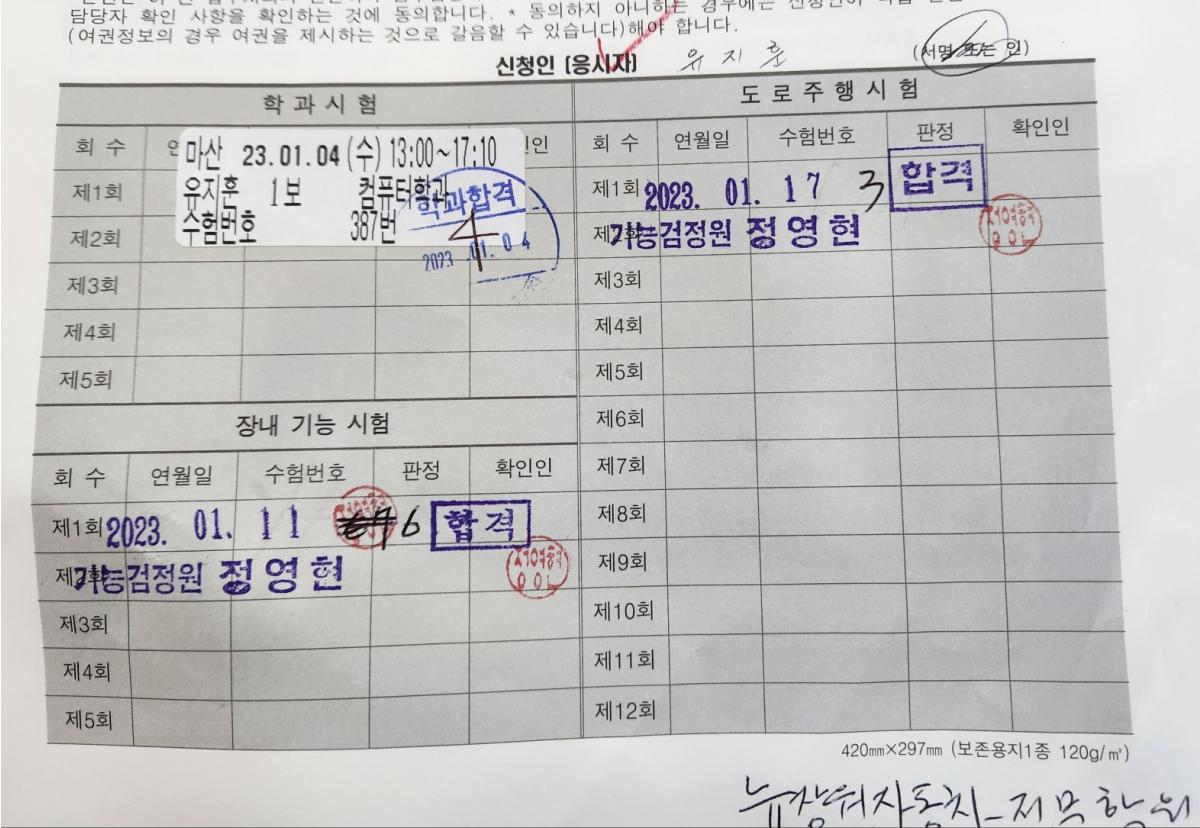 담당자 확인 사항을 확인하는 것에 동의합니다. * 동의하지 아니하는 경우에는 신청인이 직접
(여권정보의 경우 여권을 제시하는 것으로 갈음할 수 있습니다)해야 합니다.
신청인 [응시자] 유지훈 (서명 또는 인)
학과시험
회 수
마산 23.01.04 (수) 13:00~17:10
제1회 유지훈 1보 컴퓨터학과
학과합격
제2회 수험번호 387번 4
2023 .01. 04
제3회
제4회
제5회
장내 기능 시험
회 수 연월일 수험번호 판정 확인인
제1회 2023. 01. 11 6 합격
제2회 기능검정원 정영현
제3회
제4회
제5회
도로주행시험
회 수 연월일 수험번호 판정 확인인
제1회 2023. 01. 17 3 합격
제2회 기능검정원 정영현
제3회
제4회
제5회
제6회
제7회
제8회
제9회
제10회
제11회
제12회
420㎜×297㎜ (보존용지1종 120g/㎡)
뉴창원자동차-전문학원